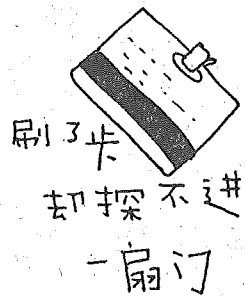 刷了卡
却探不进
一扇门